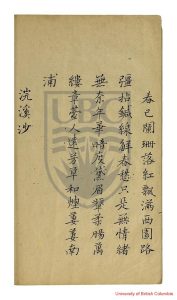 春已闌珊落紅飄滿西園路
彊拈鍼線解春愁只是無情緒
無奈年華暗度黛眉顰柔腸萬
縷章臺人遠芳草和煙萋萋南
浦
浣溪沙
University of British Columbia